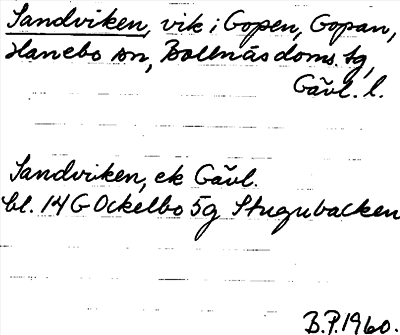 Sandviken, vik i Gopen, Gopan,
Hanebo sn, Bollnäs doms. tg,
Gävl. l.
Sandviken, ek Gävl.
bl. 14 G Ockelbo 5g Stugubacken
B.P. 1960.